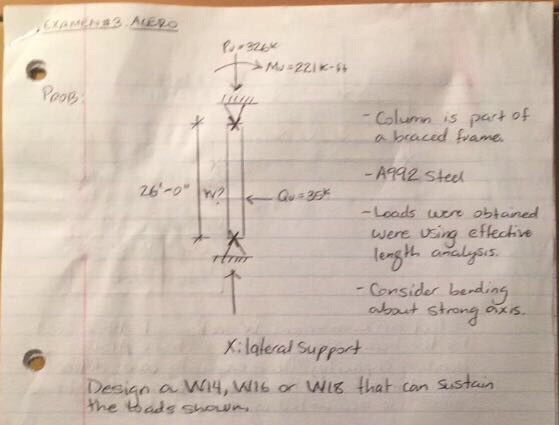 EXAMEN #3. ACERO
Pu = 326k
Mu = 221 k-ft
PROB:
26'-0"
W?
Qu = 35k
- Column is part of
a braced frame.
- A992 Steel
- Loads were obtained
were using effective
length analysis.
- Consider bending
about strong axis.
X: lateral support
Design a W14, W16 or W18 that can sustain
the loads shown.